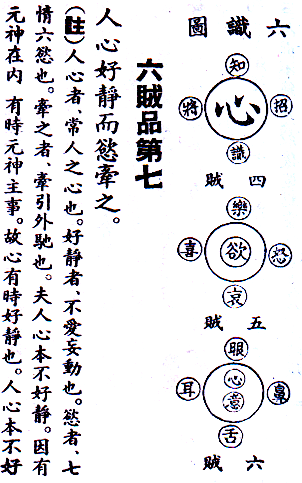 六識圖
知
招 心 將
識
四賊
樂
怒 欲 喜
哀
五賊
眼
鼻 心意 耳
舌
六賊
六賊品第七
人心好靜而慾牽之。
(註)人心者、常人之心也。好靜者、不愛妄動也。慾者、七
情六慾也。牽之者、牽引外馳也。夫人心本不好靜。因有
元神在內 有時元神主事。故心有時好靜也。人心本不好